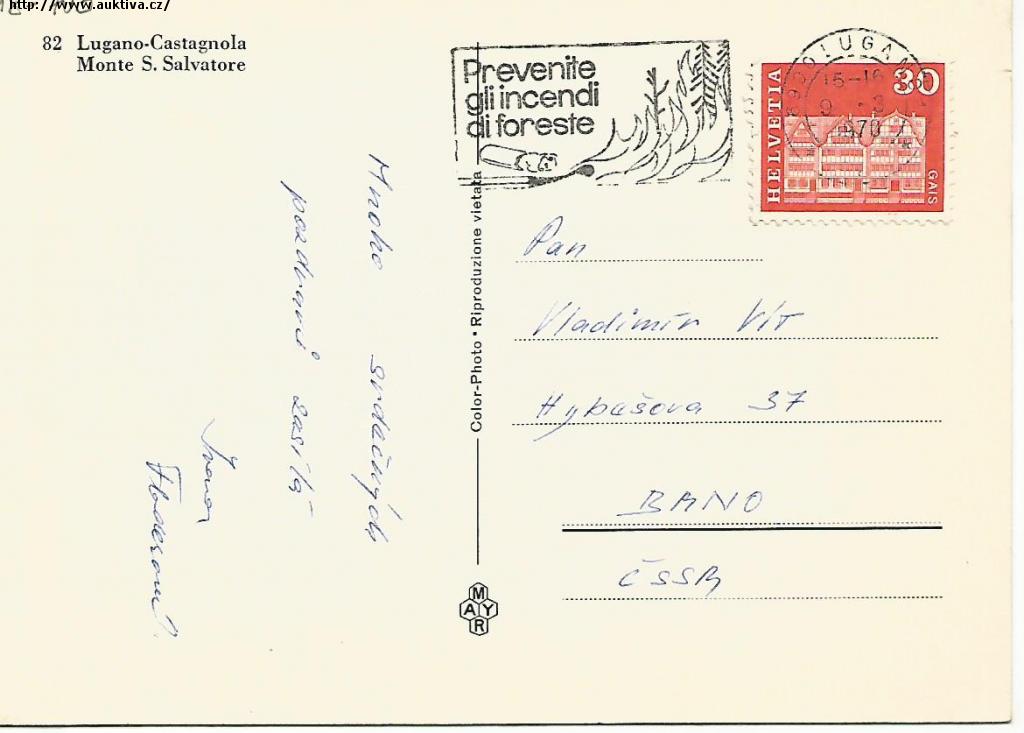 http://www.auktiva.cz/
82 Lugano-Castagnola
Monte S. Salvatore
Prevenite
gli incendi
di foreste
LUGANO
15-16
1970
HELVETIA
30
GAIS
Color-Photo • Riproduzione vietata
Mnoho srdečných
pozdravů zasílá
Pan
Vladimír Vít
Hybešova 37
BRNO
ČSSR
MAYR